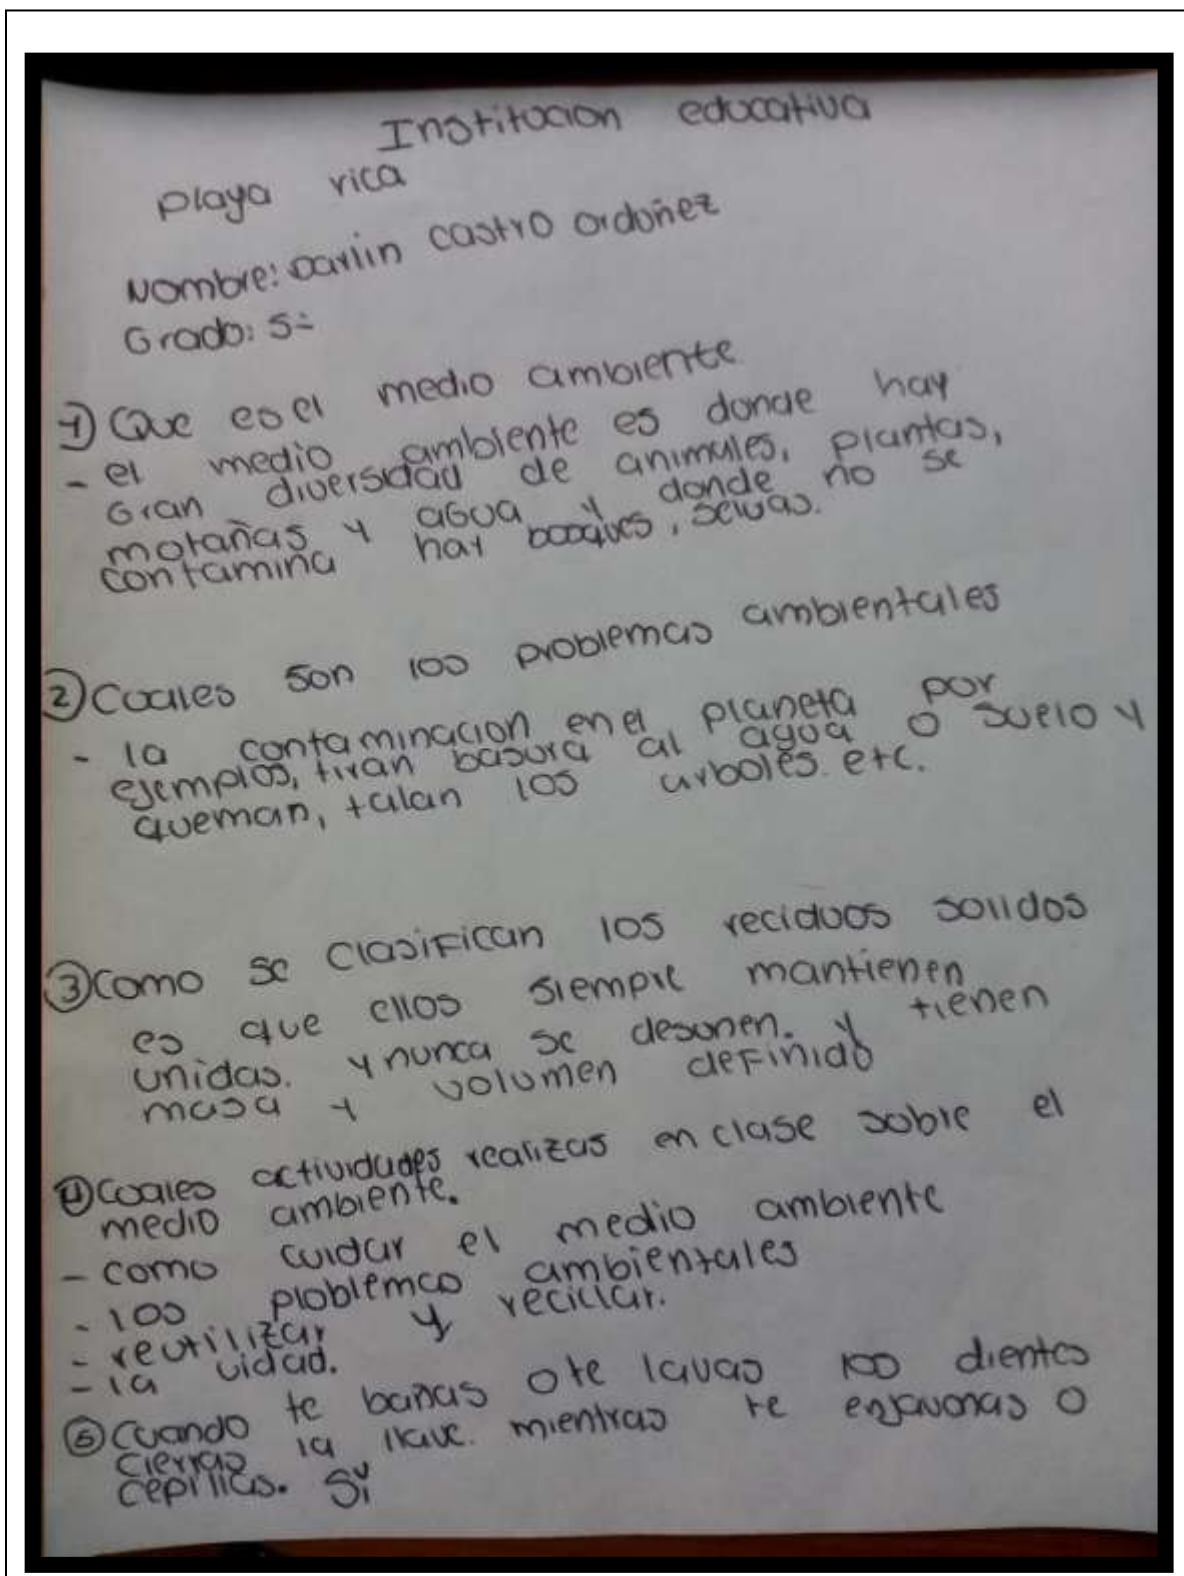 Institucion educativa
playa rica
Nombre: Darlin castro ordoñez
Grado: 5°
1) Que es el medio ambiente
- el medio ambiente es donde hay
Gran diversidad de animales, plantas,
motañas y agua y donde no se
contamina hay bosques, selvas.
2) Cuales son los problemas ambientales
- la contaminacion en el planeta por
ejemplos, tiran basura al agua o suelo y
queman, talan los arboles. etc.
3) Como se clasifican los reciduos solidos
es que ellos siempre mantienen
unidas. y nunca se desunen. y tienen
masa y volumen definido
4) Cuales actividades realizas en clase sobre el
medio ambiente.
- como cuidar el medio ambiente
- los ploblemas ambientales
- reutilizar y reciclar.
- la vidad.
5) Cuando te bañas o te lavas los dientes
cierras la llave. mientras te enjavonas o
cepillas. Si